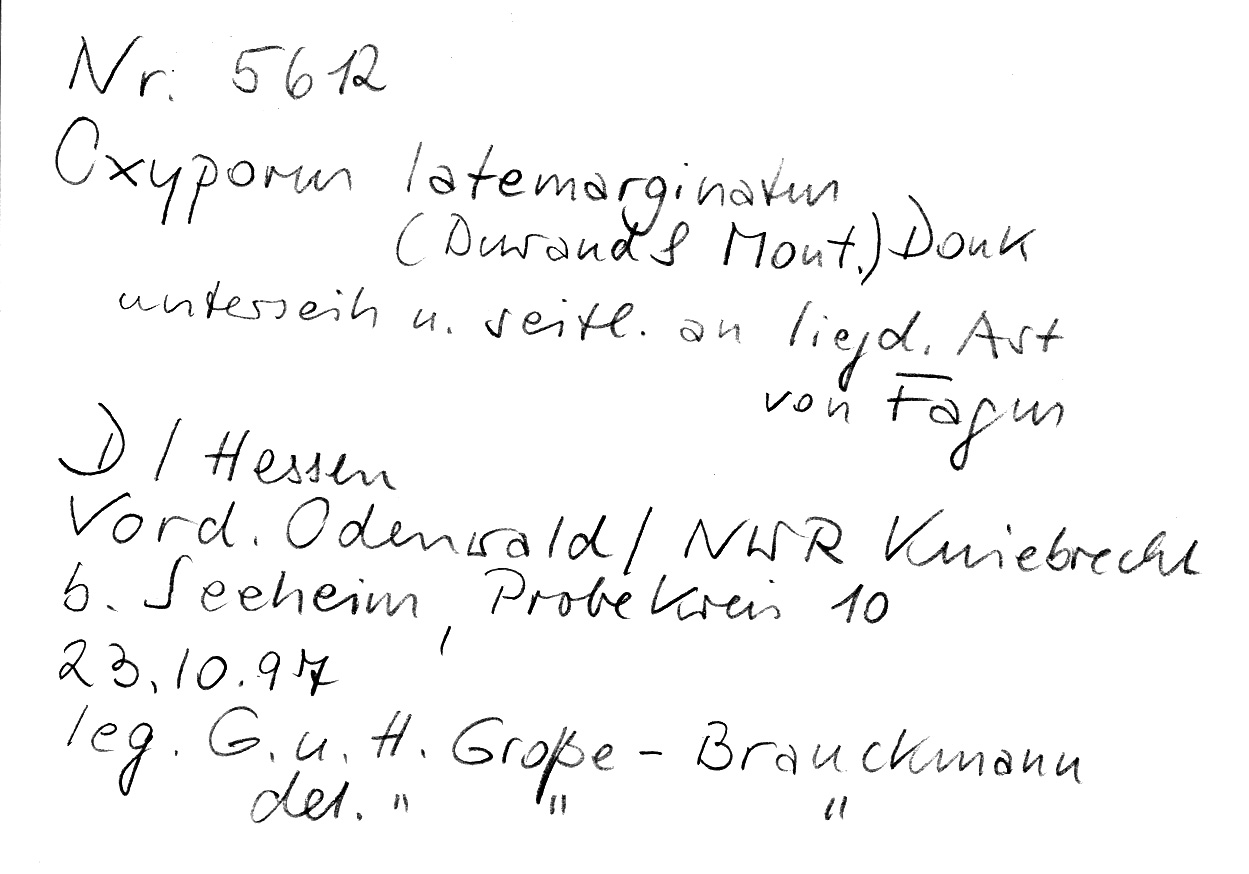 Nr. 5612
Oxyporus latemarginatus
(Durand & Mont.) Donk
unterseits u. seitl. an liegd. Ast
von Fagus
D / Hessen
Vord. Odenwald / NWR Kniebrecht
b. Seeheim, Probekreis 10
23.10.97
leg. G. u. H. Große - Brauckmann
det. " " "